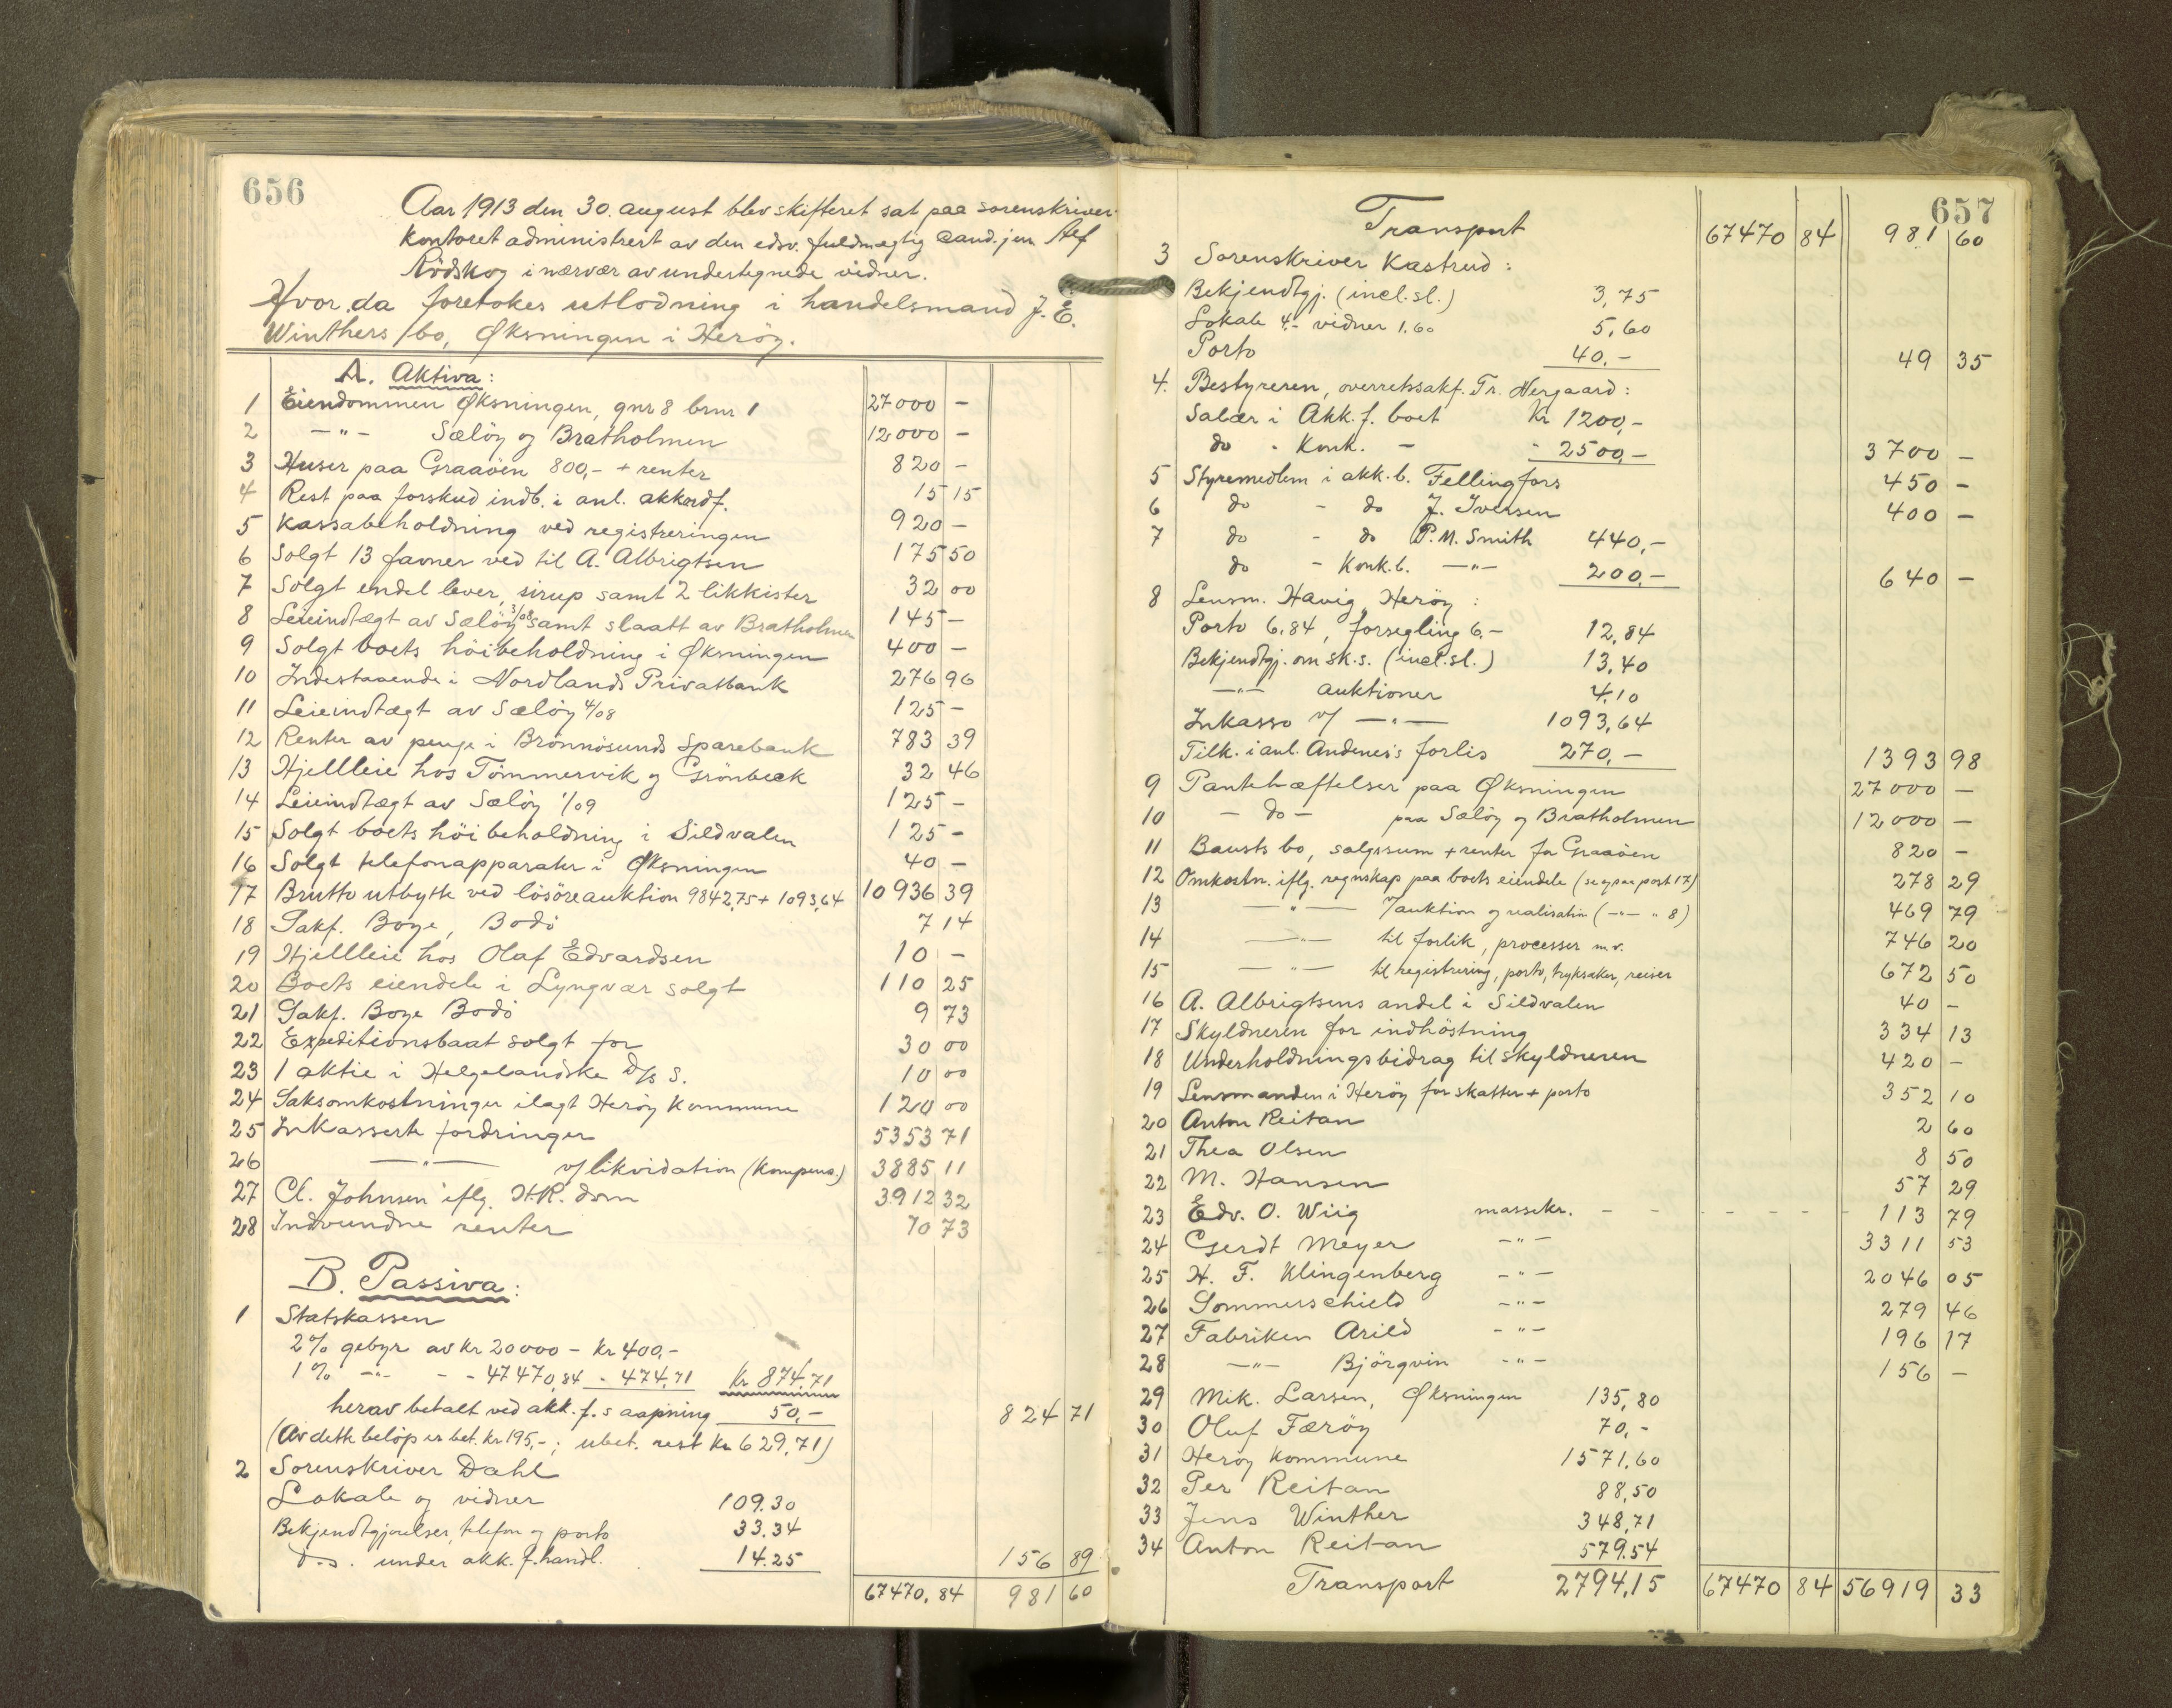 656
Aar 1913 den 30. august blev skifteret sat paa sorenskriver-
kontoret administrert av den edsv. fuldmægtig cand. jur. Alf
Rödskog i nærvær av undertegnede vidner.
Hvor da foretokes utlodning i handelsmand J. E.
Winthers bo, Øksningen i Herøy.
A. Aktiva:
1 Eiendommen Øksningen, gnr 8 brnr 1 27000 -
2 -"- Sæløy og Bratholmen 12000 -
3 Huser paa Graaöen 800,- + renter 820 -
4 Rest paa forskud indb. i anl. akkordf. 15 15
5 Kassabeholdning ved registreringen 920 -
6 Solgt 13 favner ved til A. Albrigtsen 175 50
7 Solgt endel lever, sirup samt 2 likkister 32 00
8 Leieindtægt av Sæløy 3/08 samt slaatt av Bratholmen 145 -
9 Solgt boets höibeholdning i Øksningen 400 -
10 Indestaaende i Nordlands Privatbank 276 96
11 Leieindtægt av Sæløy 4/08 125 -
12 Renter av penge i Brönnösunds Sparebank 783 39
13 Hjellleie hos Tömmervik og Grönbeck 32 46
14 Leieindtægt av Sæløy 1/09 125 -
15 Solgt boets höibeholdning i Sildvalen 125 -
16 Solgt telefonapparater i Øksningen 40 -
17 Brutto utbytte ved lösöreauktion 9842,75 + 1093,64 10936 39
18 Sakf. Boye, Bodö 7 14
19 Hjellleie hos Olaf Edvardsen 10 -
20 Boets eiendele i Lyngvær solgt 110 25
21 Sakf. Boye Bodö 9 73
22 Expeditionsbaat solgt for 30 00
23 1 aktie i Helgelandske D/s S. 10 00
24 Saksomkostninger ilagt Herøy Kommune 120 00
25 Inkasserte fordringer 5353 71
26 -"- v/ likvidation (Kompens.) 3885 11
27 Cl. Johnsen iflg. H.R. dom 3912 32
28 Indvundne renter 70 73
B. Passiva:
1 Statskassen
2% gebyr av Kr 20000 - Kr 400,-
1% -"- - - 47470,84 - 474,71 Kr 874,71
herav betalt ved akk. f.s aapning 50,- 824 71
(Av dette beløp er bet. Kr 195,-; ubet. rest Kr 629,71)
2 Sorenskriver Dahl
Lokale og vidner 109.30
Bekjendtgjørelser, telefon og porto 33.34
d.s. under akk. f. handl. 14.25 156 89
67470,84 981 60
657
Transport 67470 84 981 60
3 Sorenskriver Kastrud:
Bekjendtgj. (incl. sl.) 3,75
Lokale 4.- vidner 1.60 5,60
Porto 40.- 49 35
4. Bestyreren, overretssakf. Tr. Nergaard:
Salær i Akk. f. boet Kr 1200,-
do - Konk. - - 2500,- 3700 -
5 Styremedlem i akk. b. Fellingfors 450 -
6 do - do J. Iversen 400 -
7 do - do P.M. Smith 440,-
do - Konk.b. -"- 200,- 640 -
8 Lensm. Havig, Herøy:
Porto 6,84, forsegling 6.- 12,84
Bekjendtgj. om sk.s. (incl. sl.) 13,40
-"- auktioner 4,10
Inkasso v/ -"- 1093,64
Tilk. i anl. Andenes's forlis 270,- 1393 98
9 Pantehæftelser paa Øksningen 27000 -
10 - do - paa Sæløy og Bratholmen 12000 -
11 Bausts bo, salgssum + renter for Graaöen 820 -
12 Omkostn. iflg. regnskap paa boets eiendele (se ogsaa post 17) 278 29
13 -"- /auktion og realisation (-"- " 8) 469 79
14 -"- til forlik, processer m.v. 746 20
15 -"- til registrering, porto, tryksaker, reiser 672 50
16 A. Albrigtsens andel i Sildvalen 40 -
17 Skyldneren for indhöstning 334 13
18 Underholdningsbidrag til skyldneren 420 -
19 Lensmanden i Herøy for skatter + porto 352 10
20 Anton Reitan 2 60
21 Thea Olsen 8 50
22 M. Hansen 57 29
23 Edv. O. Wiig massekr. - - - - - - - 113 79
24 Gerdt Meyer -"- 3311 53
25 H. F. Klingenberg -"- 2046 05
26 Sommerschield -"- 279 46
27 Fabriken Arild -"- 196 17
28 -"- Björgvin -"- 156 -
29 Mik. Larsen, Øksningen 135,80
30 Oluf Færøy 70,-
31 Herøy Kommune 1571,60
32 Per Reitan 88,50
33 Jens Winther 348,71
34 Anton Reitan 579.54
Transport 2794,15 67470 84 56919 33